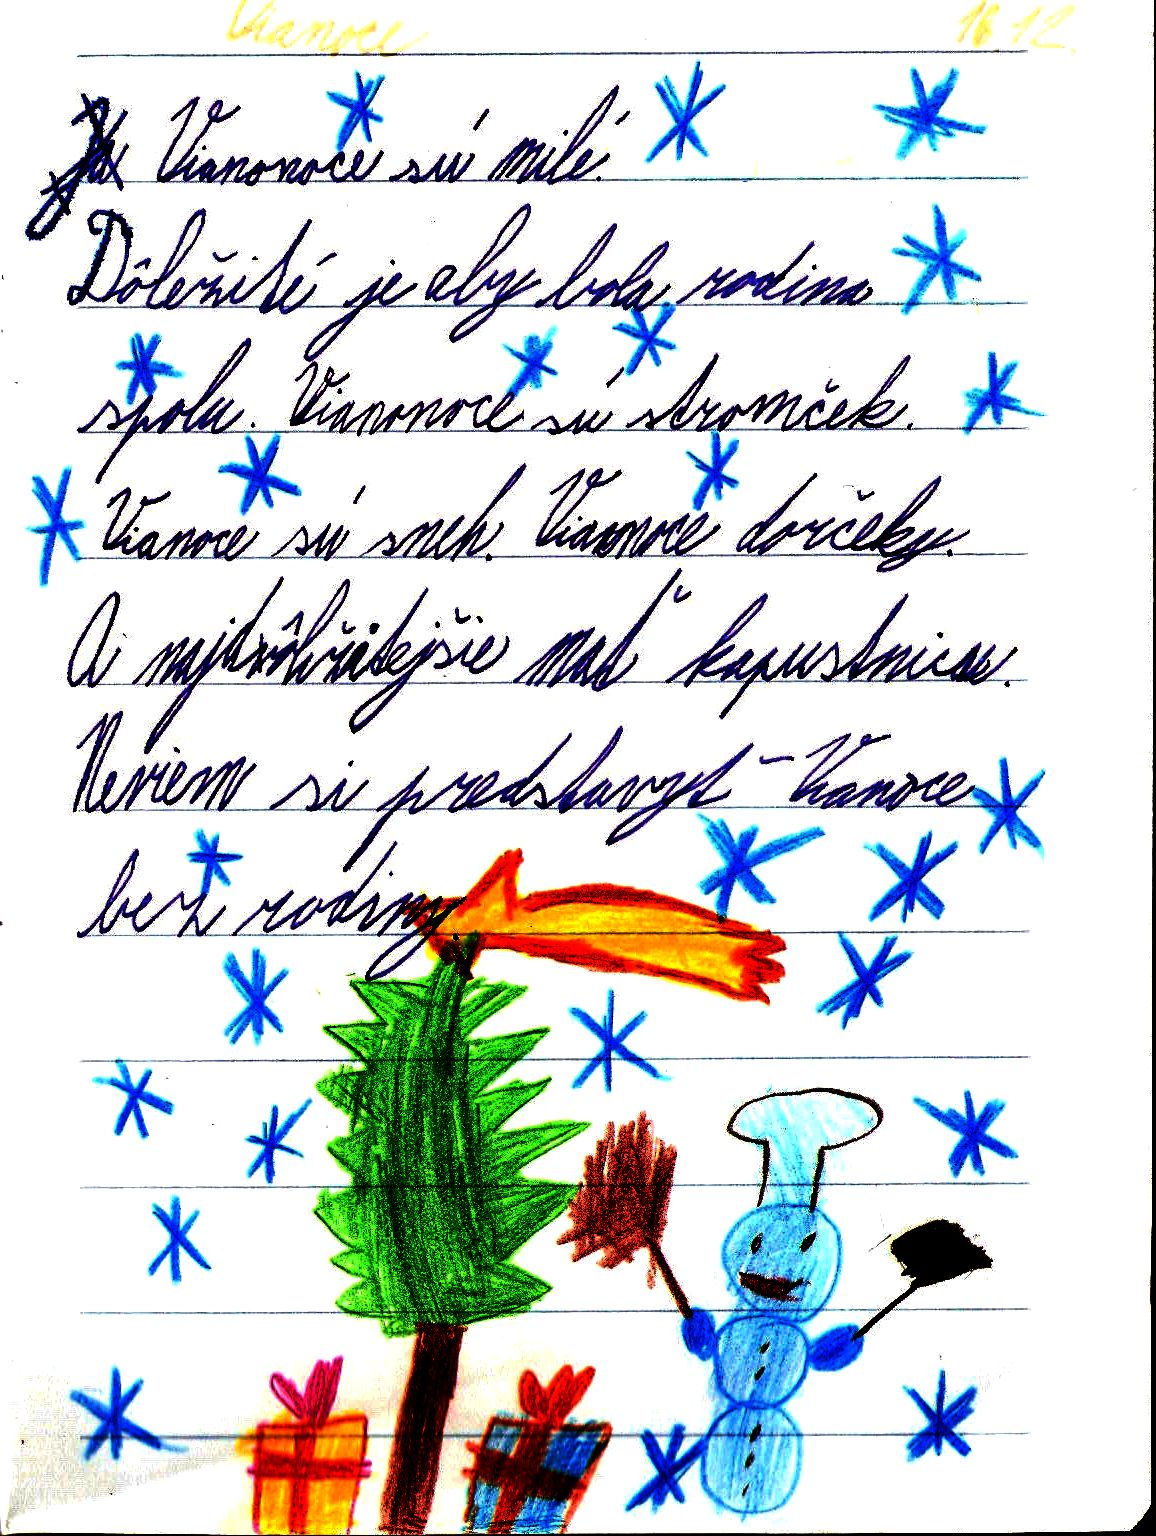 Vianoce 16 12
Vianonoce sú milé.
Dôležité je aby bola rodina
spolu. Vianonoce sú stromček.
Vianoce sú sneh. Vianoce darčeky.
A najdôležitejšie mať kapustnicu.
Neviem si predstavyť Vianoce
bez rodiny.